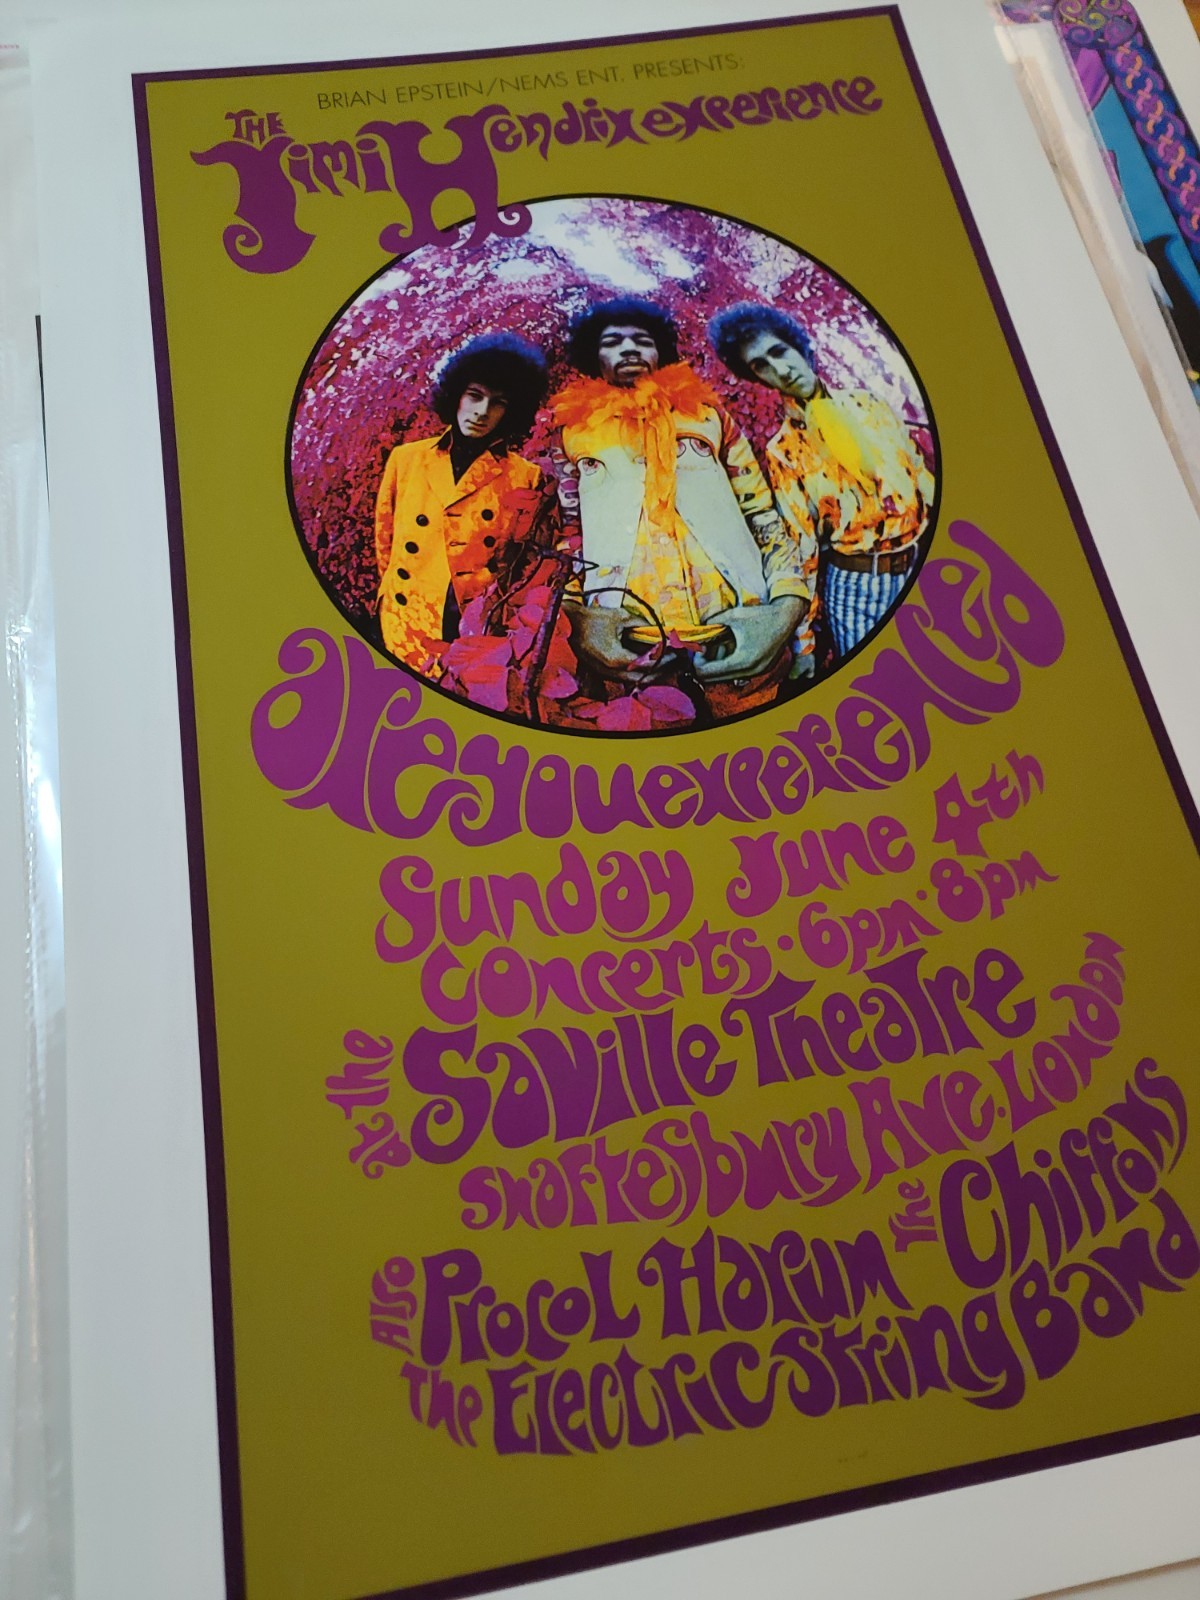 BRIAN EPSTEIN/NEMS ENT. PRESENTS:
THE
Jimi Hendrix experience
are you experienced
Sunday June 4th
Concerts · 6pm · 8pm
at the Saville Theatre
Shaftesbury Ave. London
Also Procol Harum The Chiffons
The Electric String Band